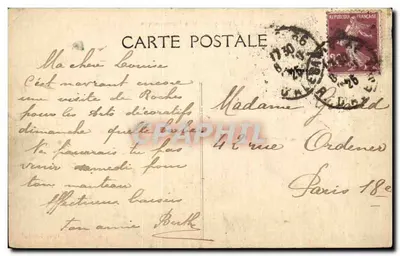 CARTE POSTALE
REPUBLIQUE FRANÇAISE
Ma chère Louise
C'est navrant encore
une visite de Roche
pour les Arts décoratifs
dimanche
Ne pourrais tu pas
venir samedi pour
ton manteau
Affectueux baisers
ton amie Berthe
Madame
42 rue Ordener
Paris 18e
CPAPHIL